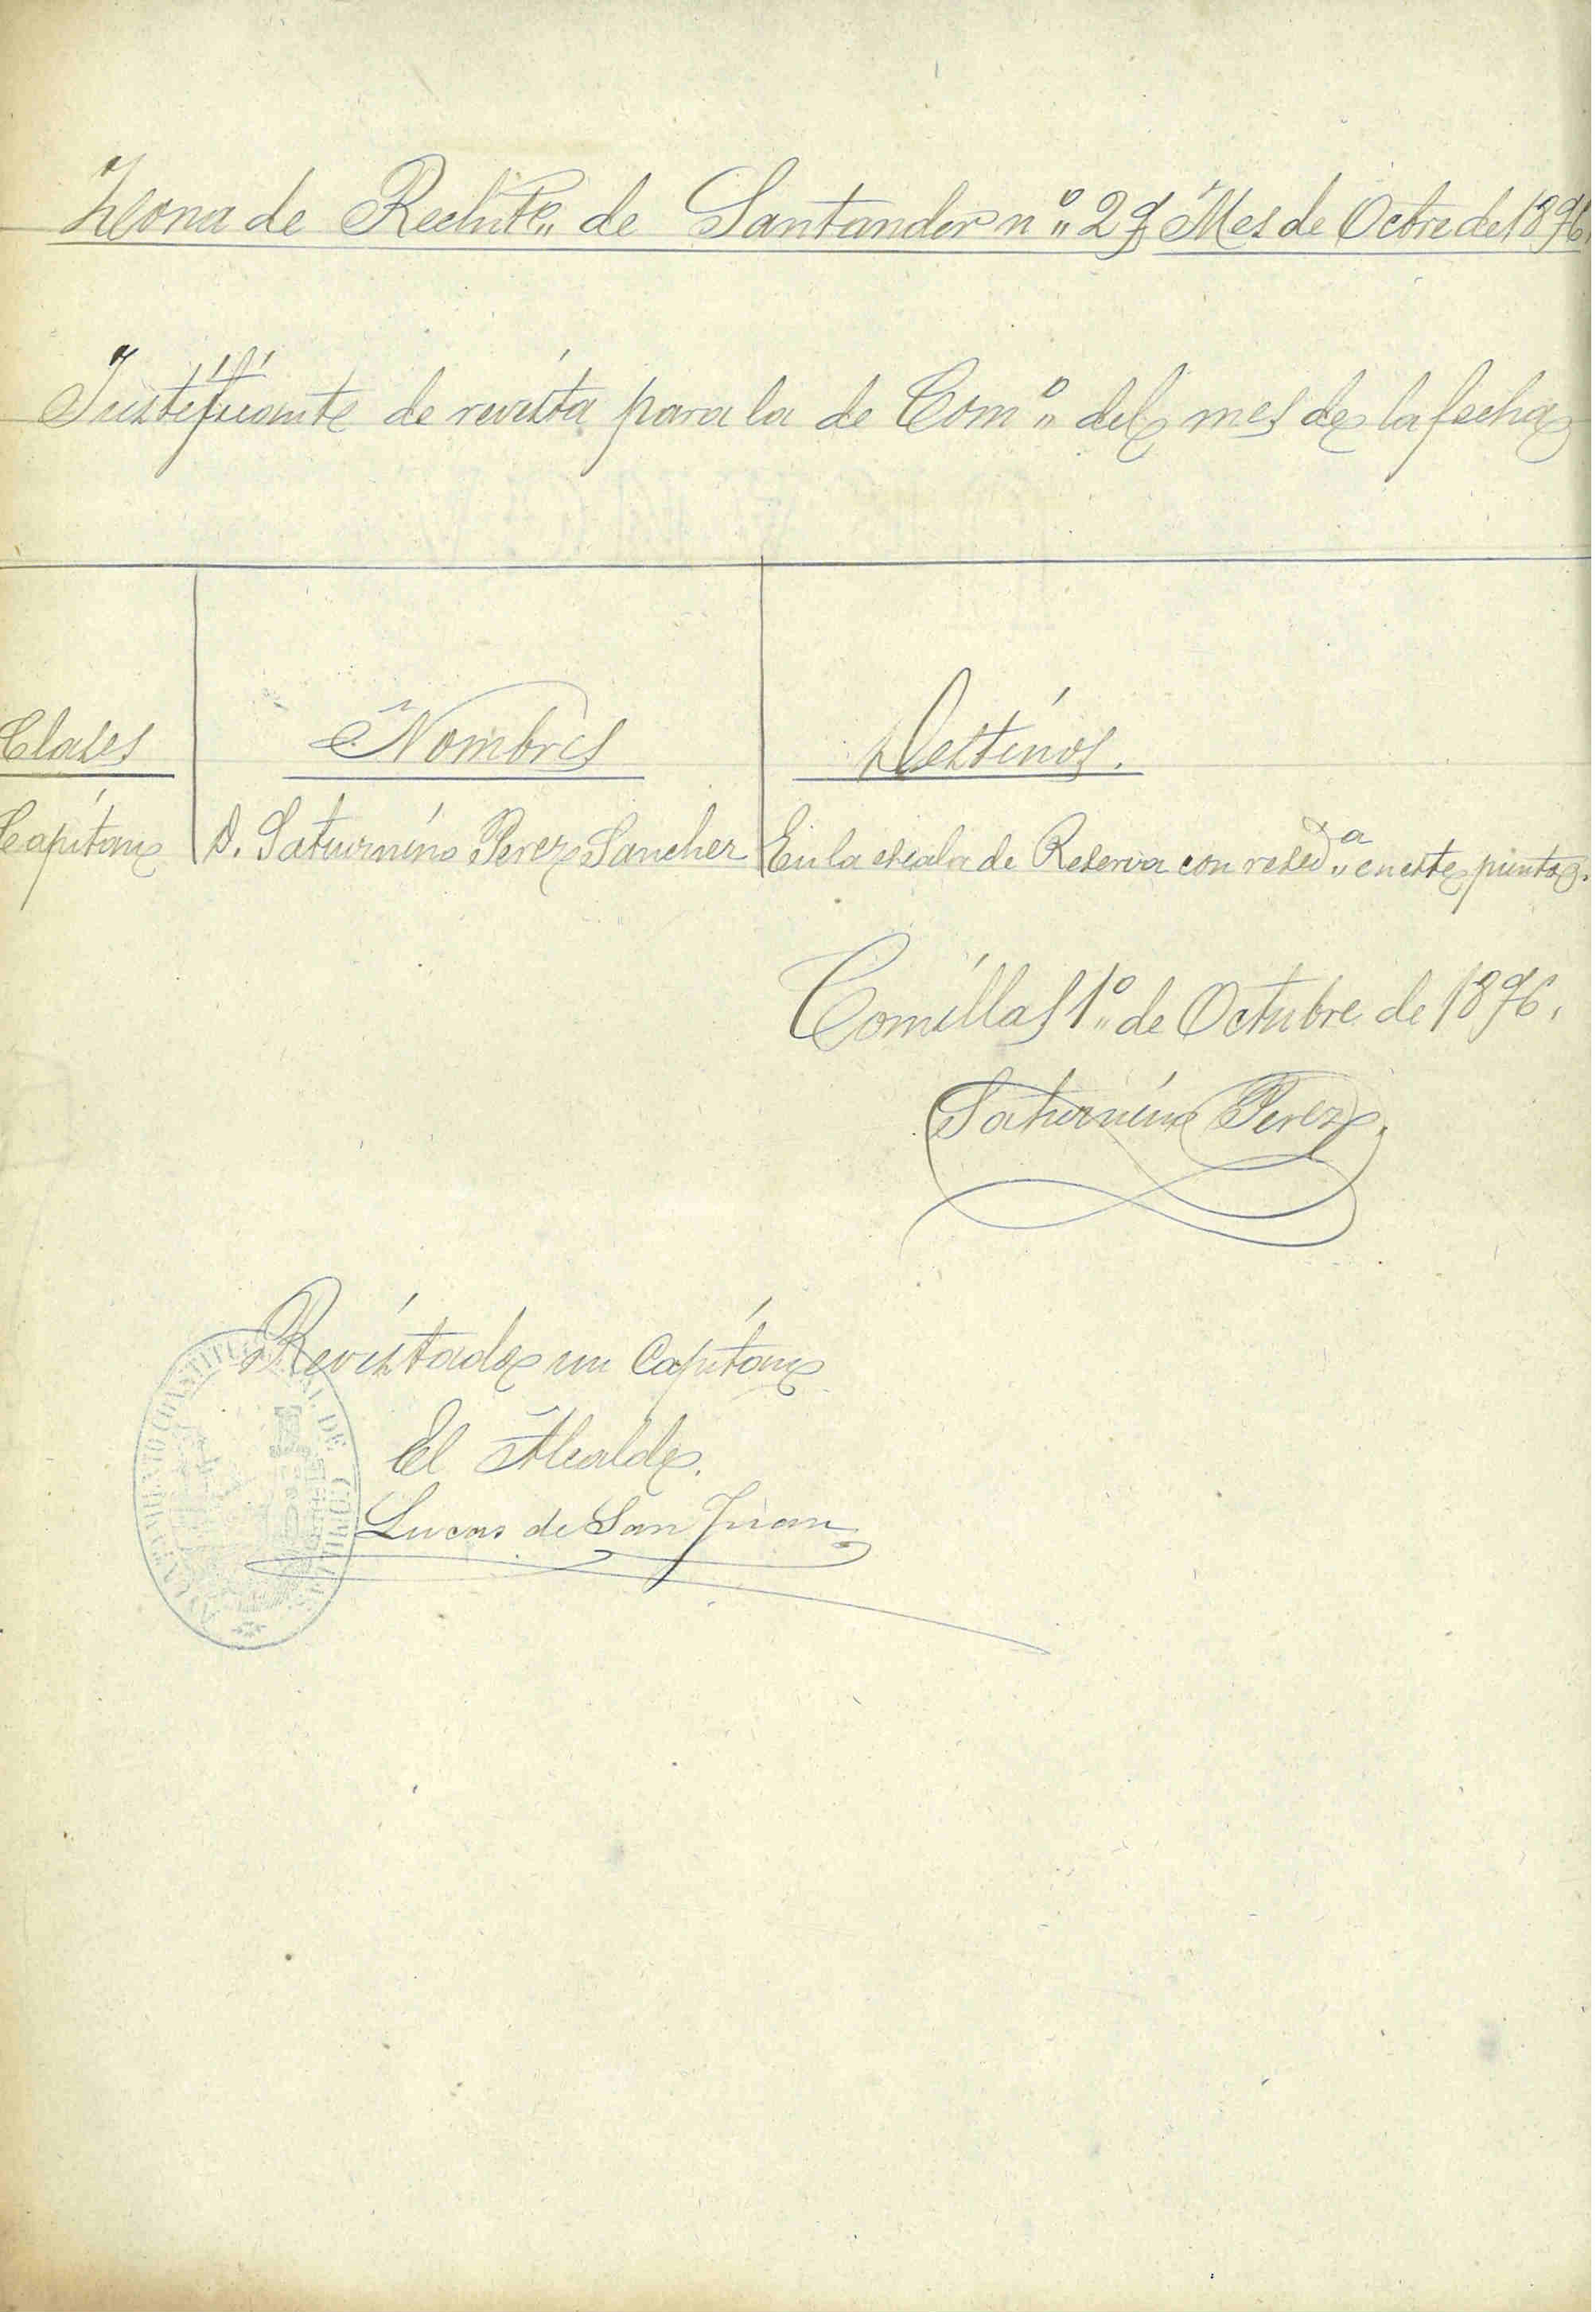 Zona de Reclutº de Santander nº 29 Mes de Octbre de 1896
Justificante de revista para la de Comº del mes de la fecha
Clases Nombres Destinos.
Capitan D. Saturnino Perez Sanchez En la escala de Reserva con residª en este punto.
Comillas 1º de Octubre de 1896.
Saturnino Perez
Revistado un Capitan
El Alcalde.
Lucas de San Juan
AYUNTAMIENTO CONSTITUCIONAL DE COMILLAS